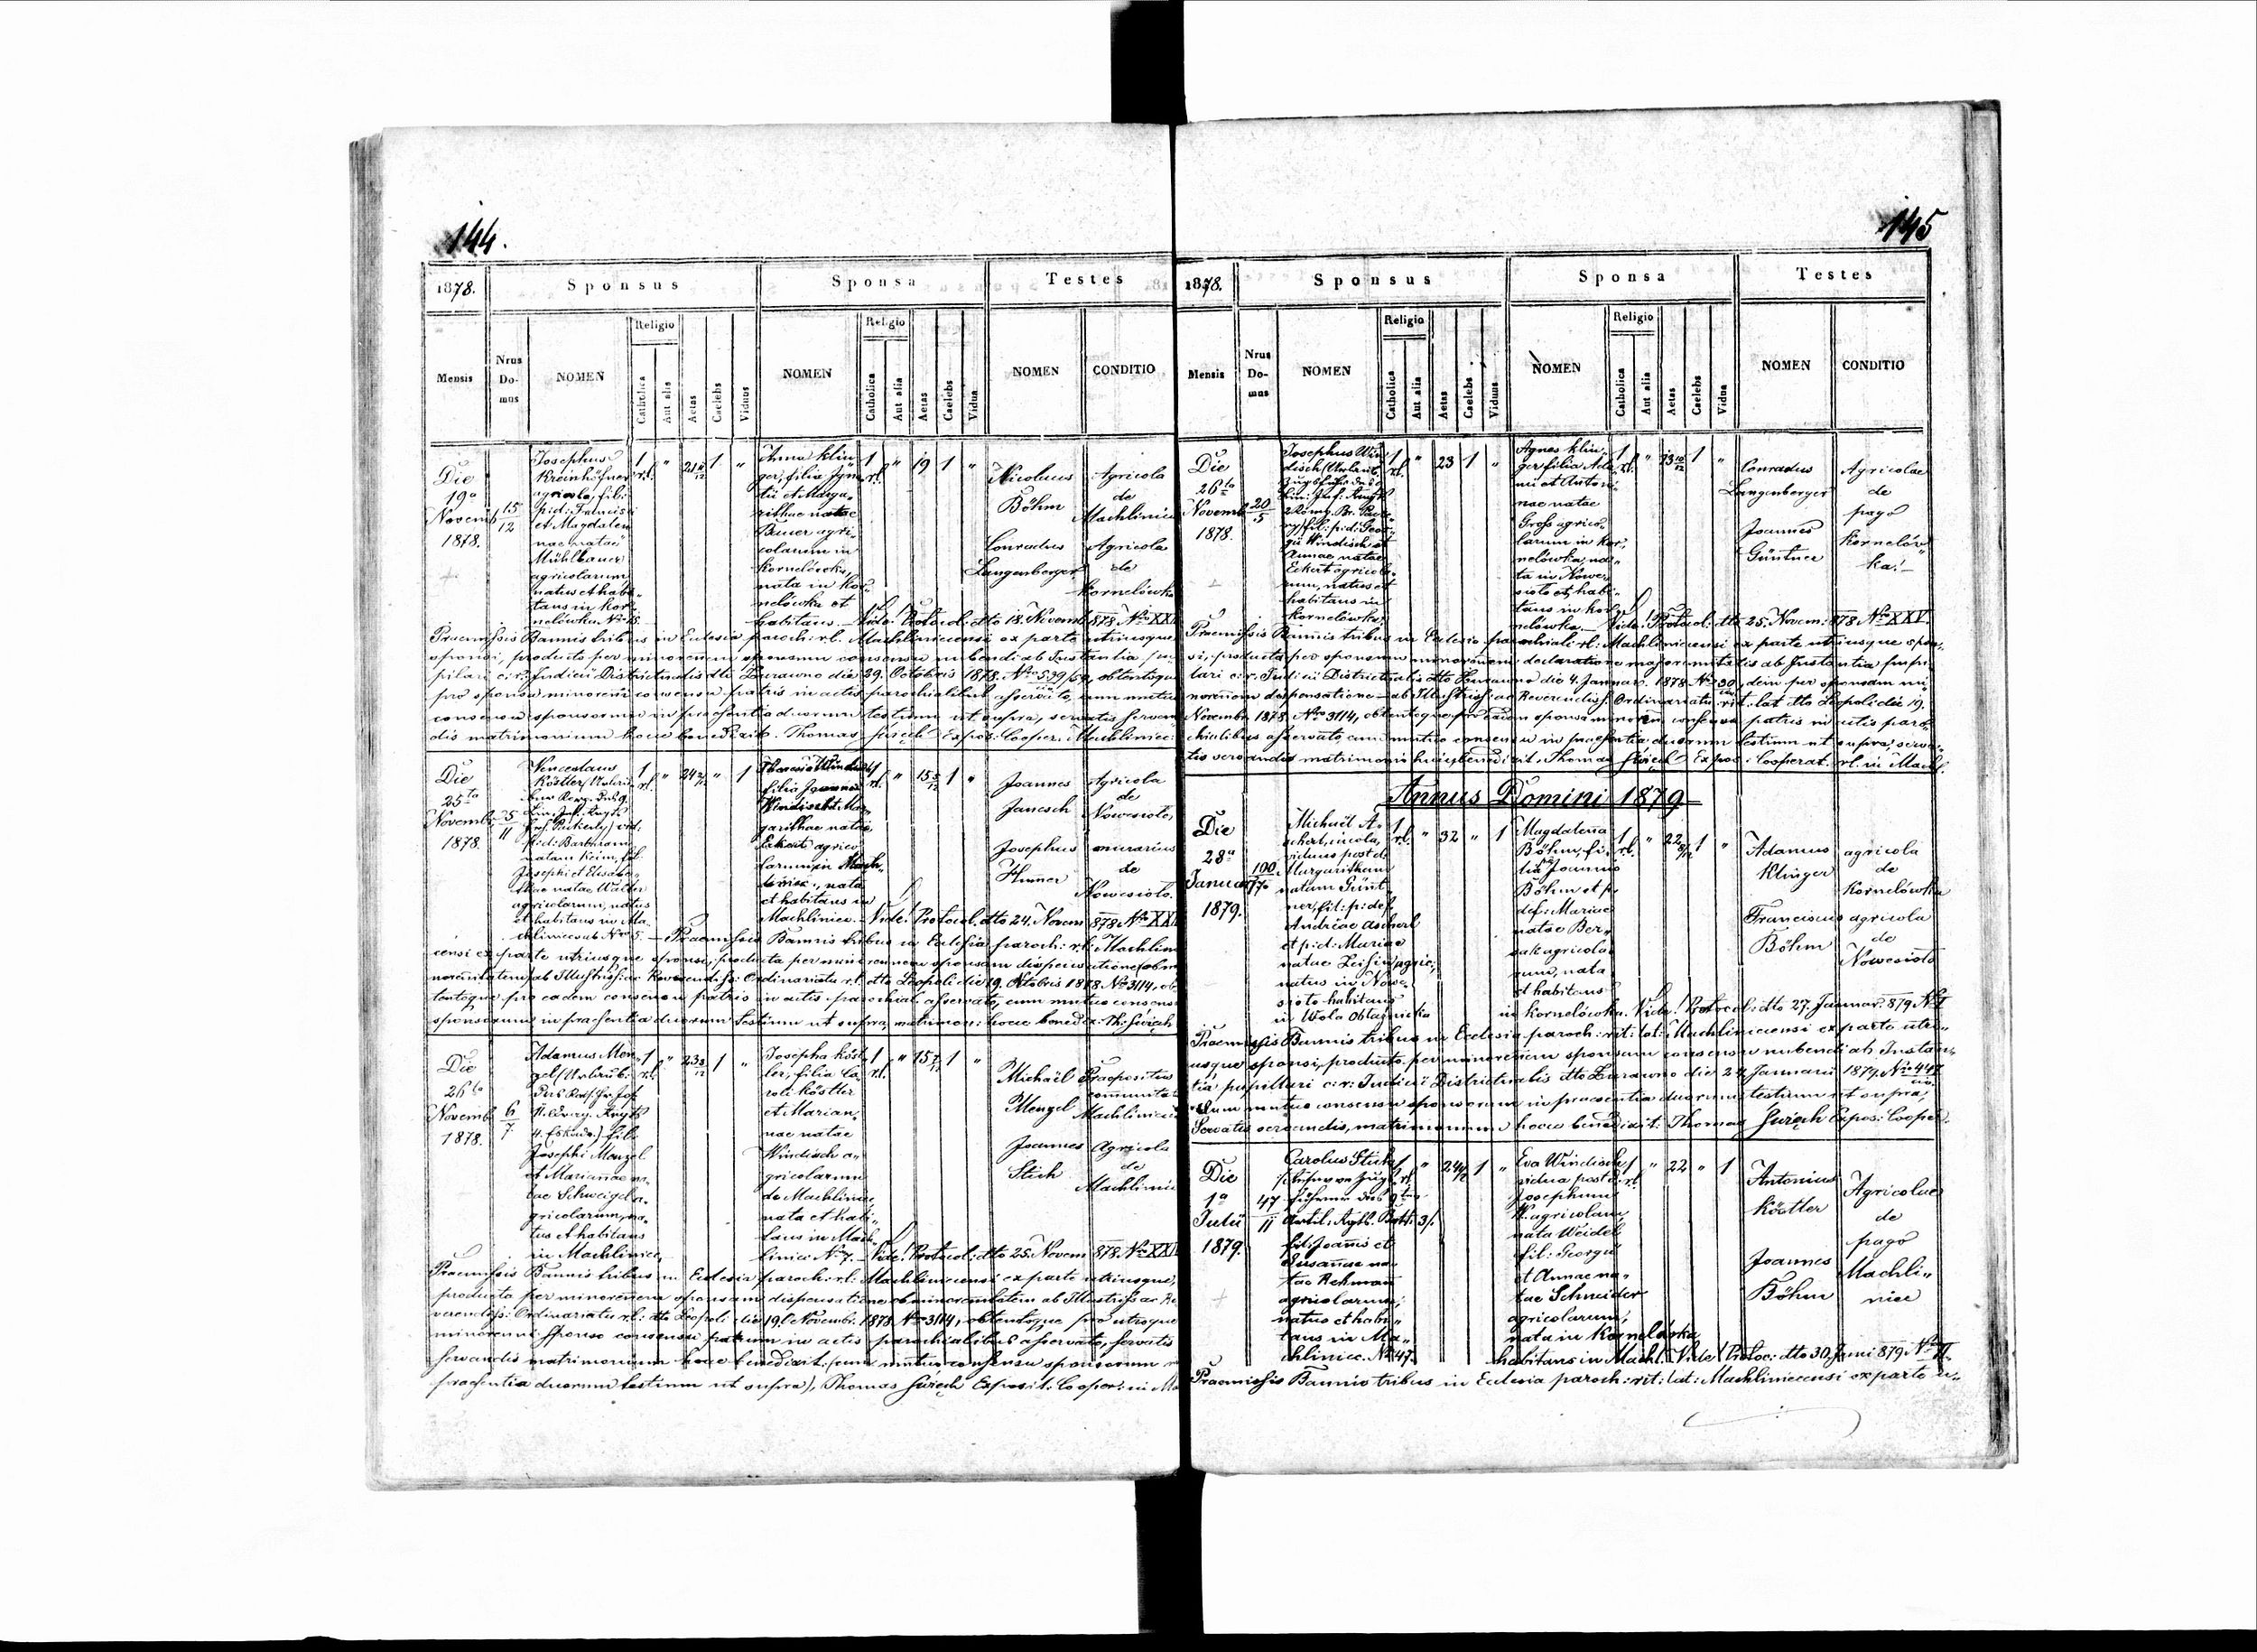 144.
1878.
Sponsus
Sponsa
Testes
Mensis
Nrus Domus
NOMEN
Religio
Catholica
Aut alia
Aetas
Caelebs
Viduus
NOMEN
Religio
Catholica
Aut alia
Aetas
Caelebs
Vidua
NOMEN
CONDITIO
Die
19a
Novemb
1878.
15
12
Josephus
Kreinhöfner
agricola, fil:
p: d: Francisci
et Magdale
nae natae
Mühlbauer
agricolarum
natus et habi„
tans in Kor„
nelówka. No 15.
1
rl.
"
1
"
Anna Klin
ger, filia Igna
tii et Marga„
rithae natae
Bauer agri„
colarum in
Kornelówka,
nata in Kor„
nelówka et
habitans.
1
rl.
"
19
1
"
Nicolaus
Böhm
Agricola
de
Machlinie
Conradus
Langenberger
Agricola
de
Kornelówka
Vide! Protocol: dto 18. Novemb 878. Nro XXI
Praemissis Bannis tribus in Eclesia paroch: rl. Machliniecensi ex parte utriusque
sponsi, producto per minorenem sponsum consensu nubendi ab Instantia pu„
pilari c: r: Judicii Districtualis dto Zurawno die 29. Octobris 1878. obtentoque
pro sponsa minoreni consensu patris in actis parochialibus asservato, cum mutuo
consensu sponsorum in praesentia duorum testium ut supra, servatis servan
dis matrimonium hocce benedixit. Thomas Święch Expos: Cooper. Machliniec:
Die
25ta
Novemb:
1878.
5
11
Venceslaus
Köstler
vid:
p: d: Barbaram
natam Keim, fil:
Josephi et Elisabe„
thae natae Walter
agricolarum, natus
et habitans in Ma„
chliniec sub Nro 5.
1
rl.
"
"
1
Theresia Windisch
filia Joannis
Windisch et Mar
garithae natae
Eckert agrico
larum in Mach„
liniec, nata
et habitans in
Machliniec.
1
rl.
"
1
"
Joannes
Janesch
Agricola
de
Nowesioło,
Josephus
murarius
de
Nowesioło.
Vide! Protocol. dto 24. Novem 878 Nro XXI
Praemissis Bannis tribus in Eclesia paroch: rl: Machlini
censi ex parte utriusque sponsi, producta per minorennem sponsam dispensatione ob mi
norenitatem ab Illustriss: ac Reverendiss: Ordinariatu rl. dto Leopoli die 19. Octobris 1878 No 3114, ob
tentoque pro eadem consensu patris in actis parochial: asservato, cum mutuo consens
sponsorum in praesentia duorum testium ut supra, matrimon: hocce benedix: Th: Święch
Die
26ta
Novemb
1878.
6
7
Adamus Men
gel
fil:
Josephi Mengel
et Mariannae na
tae Schweigel a„
gricolarum, na„
tus et habitans
in Machliniec,
1
rl.
"
1
"
Josepha Köst
ler, filia Ca
roli Köstler
et Marian„
nae natae
Windisch a„
gricolarum
de Machliniec,
nata et habi„
tans in Mach„
liniec No 7.
1
rl.
"
1
"
Michaël
Mengel
Praepositus
communitat
Machliniec
Joannes
Stich
Agricola
de
Machliniec
Vide! Protocol: dto 25. Novem 878. Nro XXI
Praemissis Bannis tribus in Eclesia paroch: rl: Machliniecensi ex parte utriusque,
producta per minorenem sponsam dispensatione ob minorennitatem ab Illustriss: ac Re
verendiss: Ordinariatu rl: dto Leopoli die 19. Novembr. 1878. Nro 3114, obtentoque pro utroque
minoreni sponso consensu patrum in actis parochialibus asservato, servatis
servandis matrimonium hocce benedixit. (cum mutuo consensu sponsorum
praesentia duorum testium ut supra), Thomas Święch Exposit: Cooper: in Ma
145
1878.
Sponsus
Sponsa
Testes
Mensis
Nrus Domus
NOMEN
Religio
Catholica
Aut alia
Aetas
Caelebs
Viduus
NOMEN
Religio
Catholica
Aut alia
Aetas
Caelebs
Vidua
NOMEN
CONDITIO
Die
26ta
Novemb
1878.
20
5
Josephus Win
disch
fil: p: d: Geor„
gii Windisch et
Annae natae
Eckert agricola„
rum, natus et
habitans in
Kornelówka.
1
rl.
"
23
1
"
Agnes Klin„
ger filia Ada
mi et Antoni„
nae natae
Gross agrico„
larum in Kor„
nelówka, na„
ta in Nowe„
sioło et habi„
tans in Kor„
nelówka.
1
rl.
"
1
"
Conradus
Langenberger
Joannes
Güntner
Agricolae
de
pago
Kornelów„
ka!
Vide! Protocol: dto 25. Novem: 878 Nro XXV.
Praemissis Bannis tribus in Eclesia parochiali rl: Machliniecensi ex parte utriusque spon„
si, producta per sponsum minorenem declaratione majorennitatis ab Instantia pupi„
lari c: r. Judicii Districtualis dto Zurawno die 4. Januar: 1878 No 30, dein per sponsam mi„
norenem dispensatione ab Illustriss: ac Reverendiss: Ordinariatu rit. lat dto Leopoli die 19.
Novembr 1878. Nro 3114, obtentoque pro eadem sponsa minoren consensu patris in actis paro„
chialibus asservato, cum mutuo consensu in praesentia duorum testium ut supra, serva„
tis servandis matrimon: huic benedixit. Thomas Święch Expos: Cooperat. rl. in Machl.
Annus Domini 1879
Die
28a
Januar
1879.
100
Michaël A„
schert, incola,
viduus post d.
Margaritham
natam Günt„
ner, fil: p: def.
Andreae Ascherl
et p: d: Mariae
natae agric:,
natus in Nowe„
sioło habitans
in Wola Oblaznicka
1
rl.
"
32
"
1
Magdalena
Böhm, fi„
lia Joannis
Böhm et p:
def: Mariae
natae Ber„
nak agricola
rum, nata
et habitans
in Kornelówka.
1
rl.
"
1
"
Adamus
Klinger
agricola
de
Kornelówka
Franciscus
Böhm
agricola
de
Nowesioło
Vide! Protocol: dto 27. Januar. 879 No I
Praemissis Bannis tribus in Ecclesia paroch: rit: lat: Machliniecensi ex parte utri„
usque sponsi, producto per minorenem sponsam consensu nubendi ab Instan„
tia pupillari c: r: Judicii Districtualis dto Zurawno die 24 Januarii 1879. Nro 447
cum mutuo consensu sponsorum in praesentia duorum testium ut supra,
Servatis servandis, matrimonium hocce benedixit: Thomas Święch Expos: Cooper.
Die
1a
Julii
1879.
47
11
Carolus Stich
fil: Joannis et
Susannae na„
tae Rehman
agricolarum;
natus et habi„
tans in Ma„
chliniec. No 47.
1
rl.
"
1
"
Eva Windisch
vidua post d.
Josephum
W. agricolam
nata Weidel
fil: Georgii
et Annae na„
tae Schneider
agricolarum;
nata in Kornelówka
habitans in Machl.
1
rl.
"
22
"
1
Antonius
Köstler
Joannes
Böhm
Agricolae
de
pago
Machli„
niec
Vide! Protoc: dto 30. Juni 879 Nro II.
Praemissis Bannis tribus in Eclesia paroch: rit: lat: Machliniecensi ex parte u„